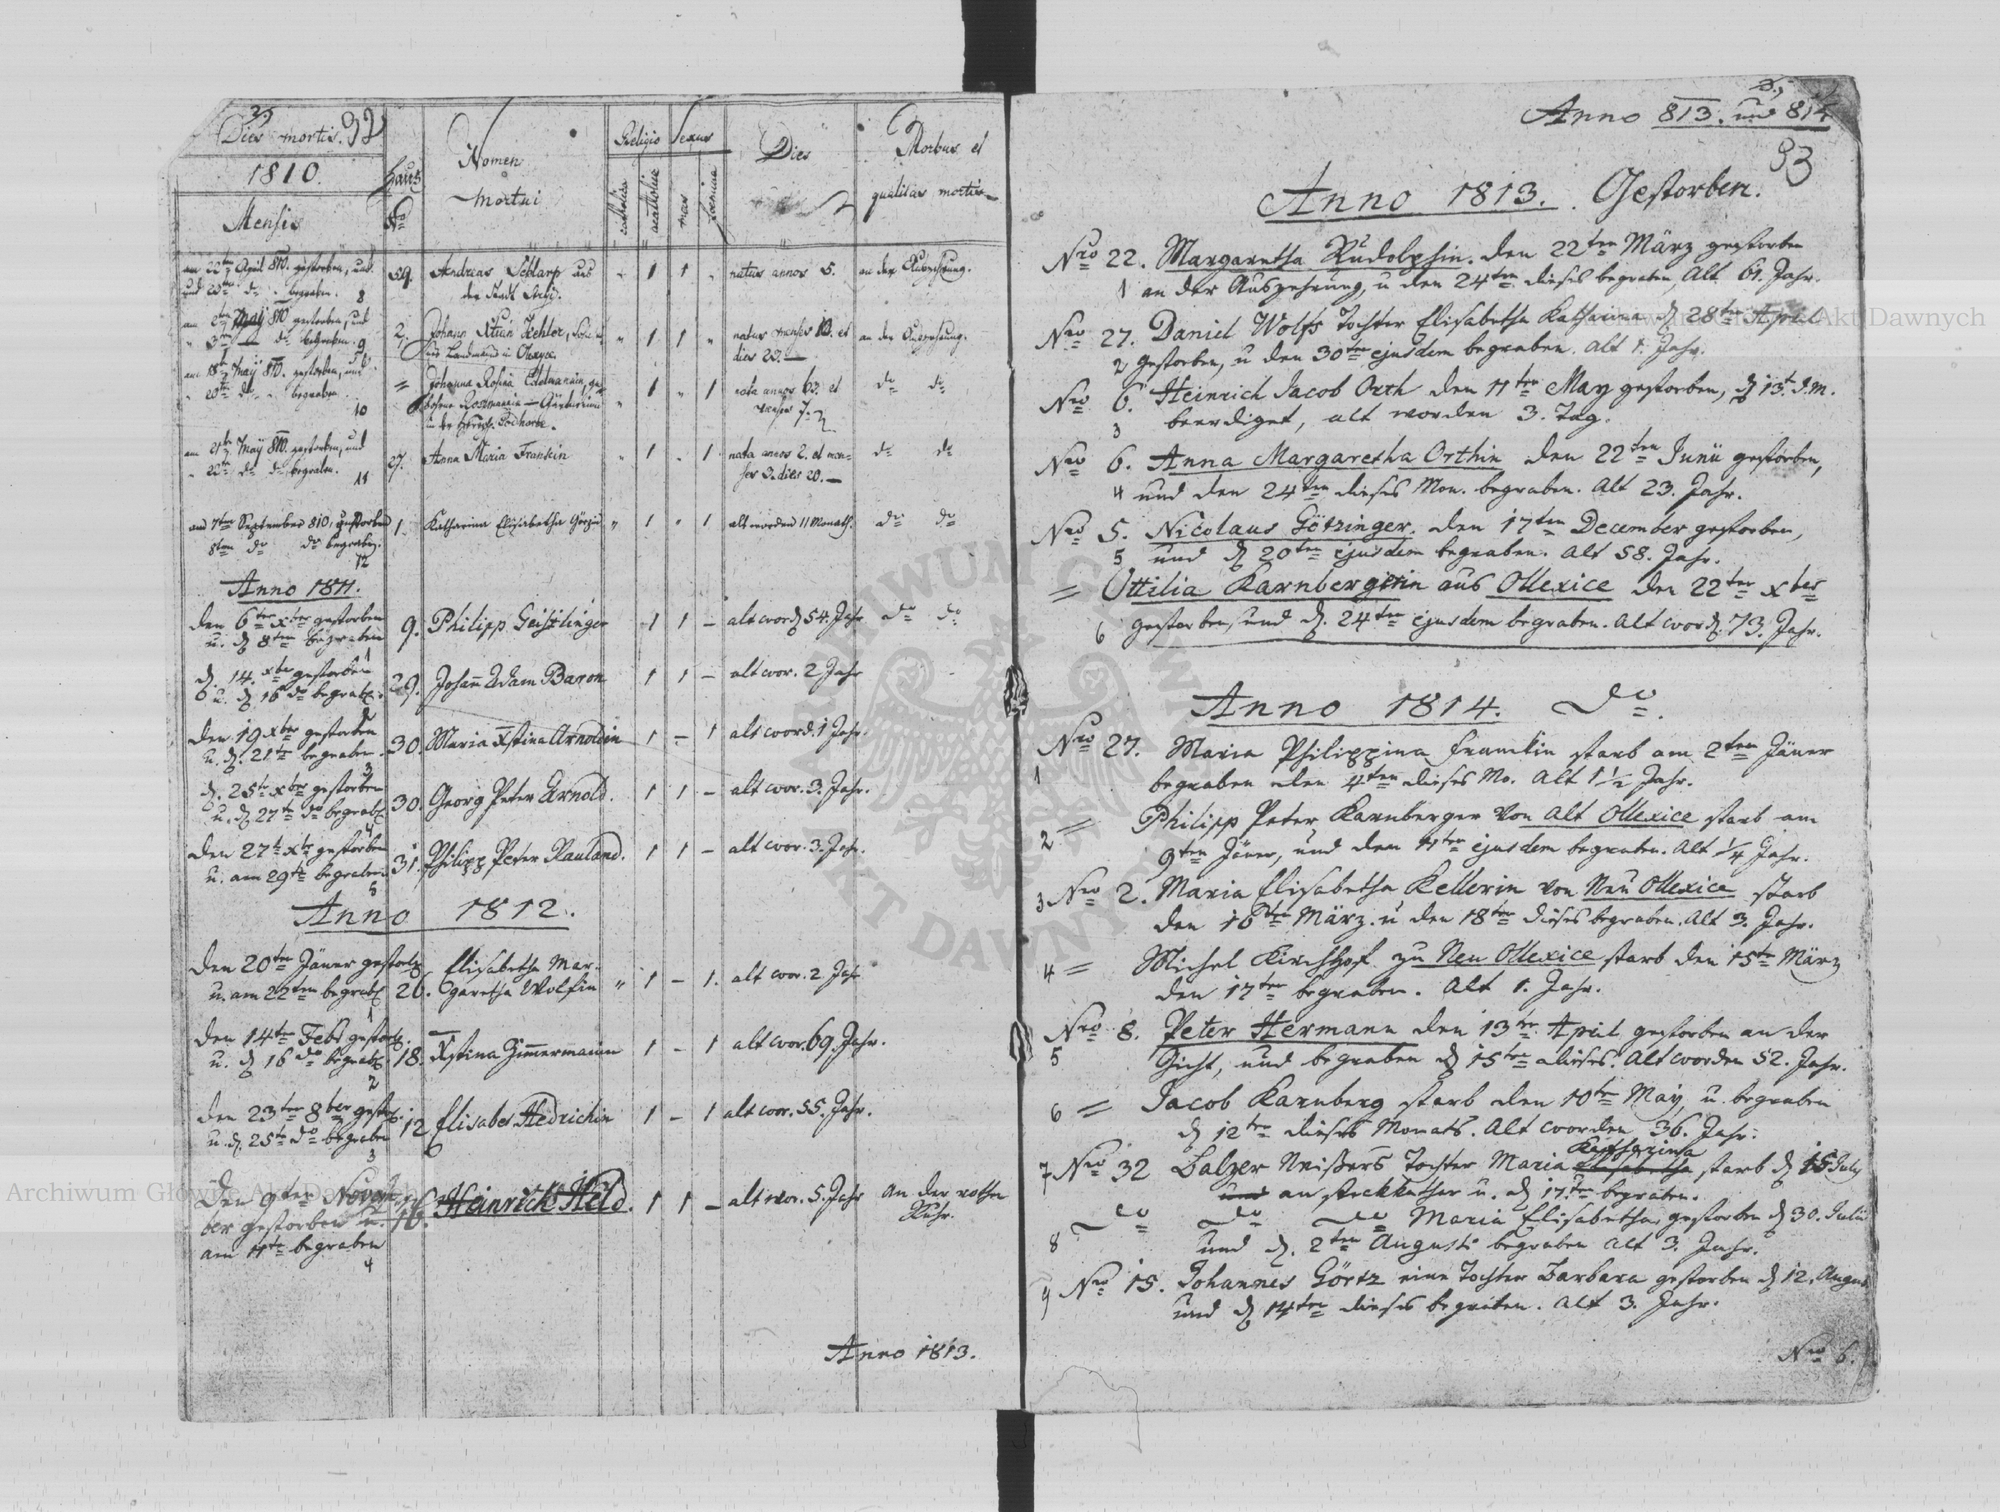 32
Dies mortis.
1810.
Mensis
Haus Nro
Nomen
mortui
Religio
catholica
acatholica
Sexus
mas
foemina
Dies
Morbus et
qualitas mortis
am 22ten April 810. gestorben, und
begraben. 8
59.
Andreas Schlarp aus
1 1
natus annos 5.
an der Auszehrung.
am 2ten May 810 gestorben, und
3ten do begraben. 9
2.
Johann Xtian
1 1 "
natus menses 10. et
dies 20.
an der Auszehrung.
am 18ten May 810. gestorben, und
20ten do begraben.
10
=
Johanna Rosina
" 1 " 1
nata annos 63. et
menses 7.
do do
am 21ten May 810. gestorben, und
22ten do do begraben.
11
27.
Anna Maria Frankin
" 1 . 1
nata annos 2. et men-
ses 3. dies 20.
do do
am 7ten September 810, gestorben
8ten do do begraben.
12
1.
Katharina Elisabetha Görzin
" 1 " 1
alt worden 11 Monath.
do do
Anno 1811.
den 6ten xber gestorben
u. d 8ten begraben
1
9.
Philipp Geistlinger
1 1 –
alt word 54. Jahr
do do
d. 14. xber gestorben
u. d 16 do begrab.
29.
Johan Adam Baron
1 1 –
alt wor. 2 Jahr
den 19 xber gestorben
u. d. 21te begraben.
3
30.
Maria Xstina Arnoldin
1 – 1
alt word. 1 Jahr.
d. 25te xber gestorben
u. d 27te do begrab
4
30.
Georg Peter Arnold.
1 1 –
alt wor. 3. Jahr.
den 27te xbr gestorben
u. am 29te begraben
5
31.
Philipp Peter Rauland.
1 1 –
alt wor. 3. Jahr.
Anno 1812.
den 20ten Jäner gestorb
u. am 22ten begrab
1
26.
Elisabetha Mar-
garetha Wolfin
" 1 – 1.
alt wor. 2 Jahr
den 14te Feb. gestorb.
u. d 16 do begrab
2
18.
Xstina Zimmermanin
1 – 1
alt wor. 69. Jahr.
den 23ten 8ber gestorb.
u. d. 25te do begraben
3
12
Elisabet Hedrichin
1 – 1
alt wor. 55. Jahr.
den 9ten Novem
ber gestorben u.
am 11te begraben
4
16.
Heinrich Held.
1 1 –
alt wor. 5. Jahr
an der rothen
Ruhr.
Anno 1813.
Anno 813. und 814
33
Anno 1813. Gestorben.
Nro 22. Margaretha Rudolphin. den 22ten März gestorben
1 an der Auszehrung, u den 24ten dieses begraben, Alt 61. Jahr.
Nro 27. Daniel Wolfs Tochter Elisabetha Katharina d 28ten April
2 gestorben, u den 30ten ejusdem begraben. Alt 1. Jahr.
Nro 6. Heinrich Jacob Orth den 11ten May gestorben, d 13t d. M.
3 beerdiget, alt worden 3. Tag.
Nro 6. Anna Margaretha Orthin den 22ten Junii gestorben,
4 und den 24ten dieses Mon. begraben. Alt 23. Jahr.
Nro 5. Nicolaus Götzinger. den 17ten December gestorben,
5 und d 20ten ejusdem begraben. Alt 58. Jahr.
= Ottilia Karnbergerin aus Ollexice den 22ten xber
6 gestorben, und d. 24ten ejusdem begraben. Alt word. 73. Jahr.
Anno 1814. do.
Nro 27. Maria Philippina Franckin starb am 2ten Jäner
1 begraben den 4ten dieses Mo. Alt 1 1/2 Jahr.
2 = Philipp Peter Karnberger von Alt Ollexice starb am
9ten Jäner, und den 11ten ejusdem begraben. Alt 1/4 Jahr.
3 Nro 2. Maria Elisabetha Kellerin von Neu Ollexice starb
den 16ten März. u den 18ten dieses begraben. Alt 3. Jahr.
4 = Michel Kirchhof zu Neu Ollexice starb den 15te März
den 17ten begraben. Alt 1. Jahr.
Nro 8. Peter Hermann den 13ten April gestorben an der
5 Gicht, und begraben d 15ten dieses. Alt worden 52. Jahr.
6 = Jacob Karnberg starb den 10te May, u. begraben
d 12ten dieses Monats. Alt worden 36. Jahr.
Katharina
7 Nro 32 Balzer Tochter Maria Elisabetha starb d 15 July
und an steckkather u. d 17.ten begraben.
8 do do do Maria Elisabetha, gestorben d 30. Julii
und d. 2ten Augusti begraben alt 3. Jahr.
9 Nro 15. Johannes Görtz eine Tochter Barbara gestorben d 12. August
und d 14ten dieses begraben. Alt 3. Jahr.
Nro 6.
Archiwum Główne Akt Dawnych
Archiwum Główne Akt Dawnych
ARCHIWUM GŁÓWNE AKT DAWNYCH